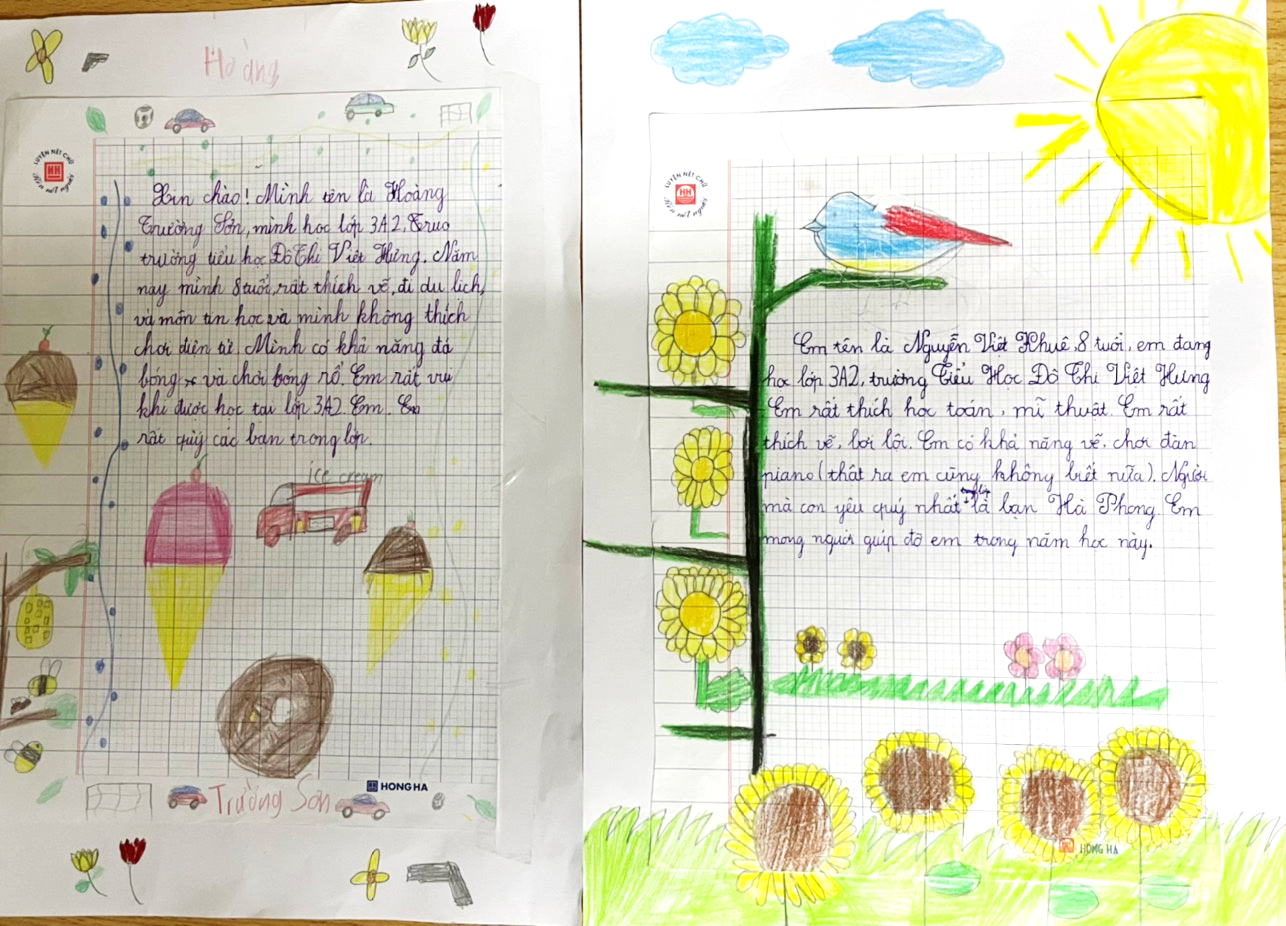 Hoàng
LUYỆN NÉT CHỮ
Rèn nết người
HH
Xin chào! Mình tên là Hoàng
Trường Sơn, mình học lớp 3A2, Truo
trường tiểu học Đô Thị Việt Hưng. Năm
nay mình 8 tuổi, rất thích vẽ, đi du lịch,
và môn tin học và mình không thích
chơi điện tử. Mình có khả năng đá
bóng và chơi bong rổ. Em rất vu
khi được học tại lớp 3A2. Em. Em
rất quý các bạn trong lớp.
ice cream
HONG HA
Trường Sơn
LUYỆN NÉT CHỮ
Rèn nết người
HH
Em tên là Nguyễn Việt Khuê, 8 tuổi, em đang
học lớp 3A2, trường Tiểu Học Đô Thị Việt Hưng
Em rất thích học toán, mĩ thuật. Em rất
thích vẽ, bơi lội. Em có khả năng vẽ, chơi đàn
piano (thật ra em cũng không biết nữa). Người
mà con yêu quý nhất là bạn Hà Phong. Em
mong người giúp đỡ em trong năm học này.
HONG HA